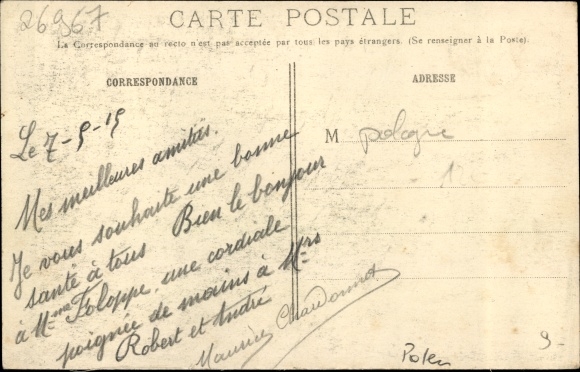 26967
CARTE POSTALE
La Correspondance au recto n'est pas acceptée par tous les pays étrangers. (Se renseigner à la Poste).
CORRESPONDANCE
ADRESSE
Le 7-9-15
Mes meilleures amitiés.
Je vous souhaite une bonne
santé à tous Bien le bonjour
à Mme Foloppe, une cordiale
poignée de mains à Mrs
Robert et André
Maurice
M pologne
1
9-
Polen